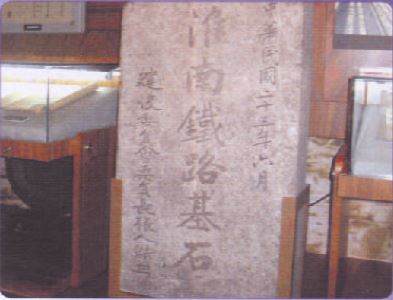 中華民國二十三年六月
淮南鐵路基石
建設委員會委員長張人傑